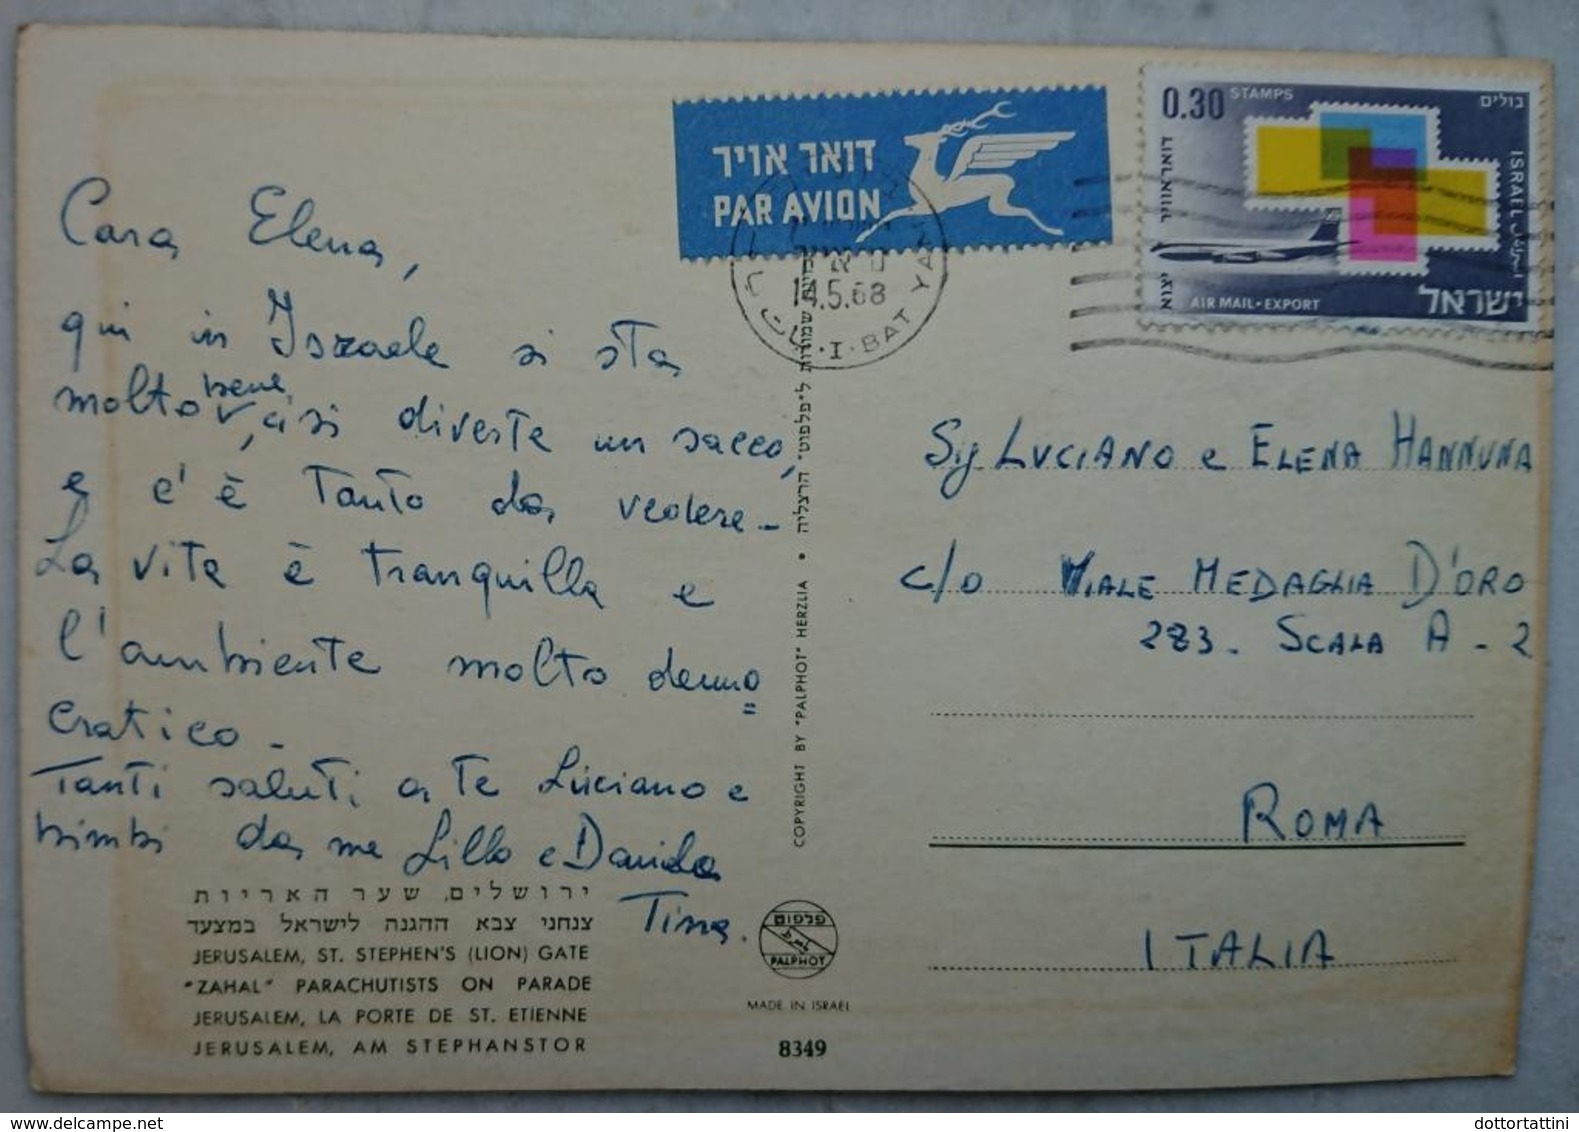 Cara Elena,
qui in Israele si sta
molto bene, ci si diverte un sacco,
e c'è tanto da vedere -
La vita è tranquilla e
l'ambiente molto demo=
cratico -
Tanti saluti a te Luciano e
bimbi da me Lillo e Davida
Tina.
ירושלים, שער האריות
צנחני צבא ההגנה לישראל במצעד
JERUSALEM, ST. STEPHEN'S (LION) GATE
"ZAHAL" PARACHUTISTS ON PARADE
JERUSALEM, LA PORTE DE ST. ETIENNE
JERUSALEM, AM STEPHANSTOR
COPYRIGHT BY "PALPHOT" HERZLIA • שמורות ל"פלפוט" הרצליה
פלפוט
PALPHOT
MADE IN ISRAEL
8349
דואר אויר
PAR AVION
14.5.68
· I · BAT YAM
0.30 STAMPS בולים
ISRAEL اسرائيل
דואר אויר
יצוא
AIR MAIL • EXPORT
ישראל
Sig LUCIANO e ELENA HANNUNA
c/o VIALE MEDAGLIA D'ORO
283 - SCALA A - 2
ROMA
ITALIA
dottortattini